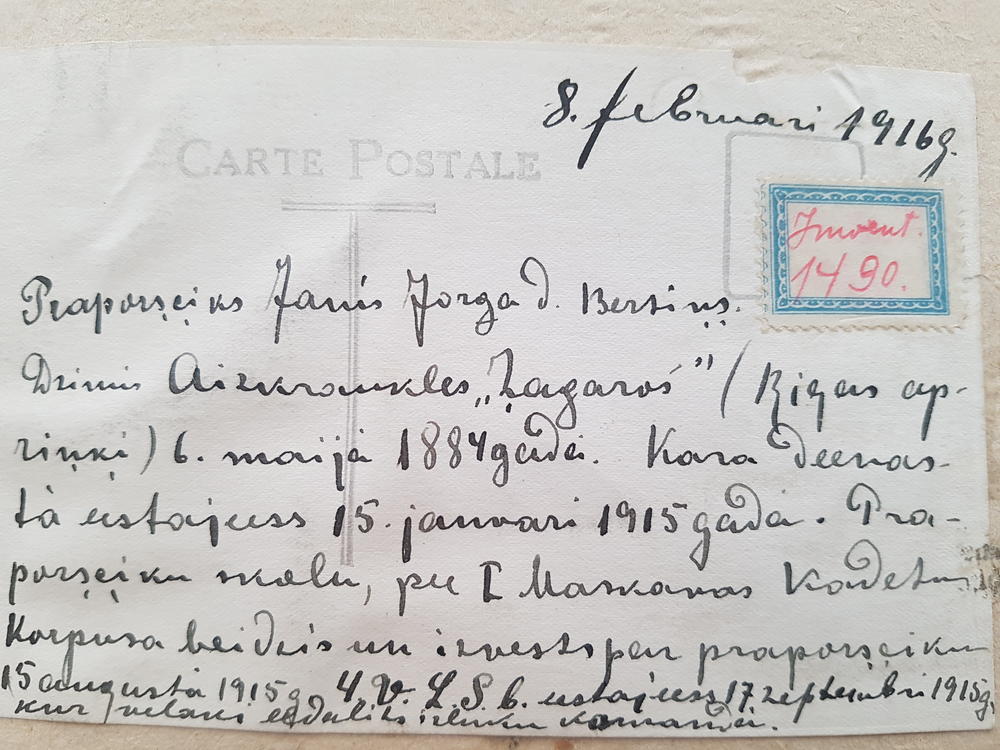 8. februari 1916g.
CARTE POSTALE
Jnvent.
1490.
Praporşçiks Janis Jorga d. Bersiņş.
Dzimis Aizkraukles „Žagaros” (Rigas ap-
riņķi) 6. maijá 1884gadá. Kara deenas-
tá eestajees 15. janvari 1915gadá. Pra-
porşçiku skolu, pee I Maskavas Kadetu
Korpusa beidzis un izvests par praporşçiku
15 augustá 1915g. 4. V. L. S. b. eestajees 17 zeptembri 1915g,
kur velaki eedalits izluku komandá.